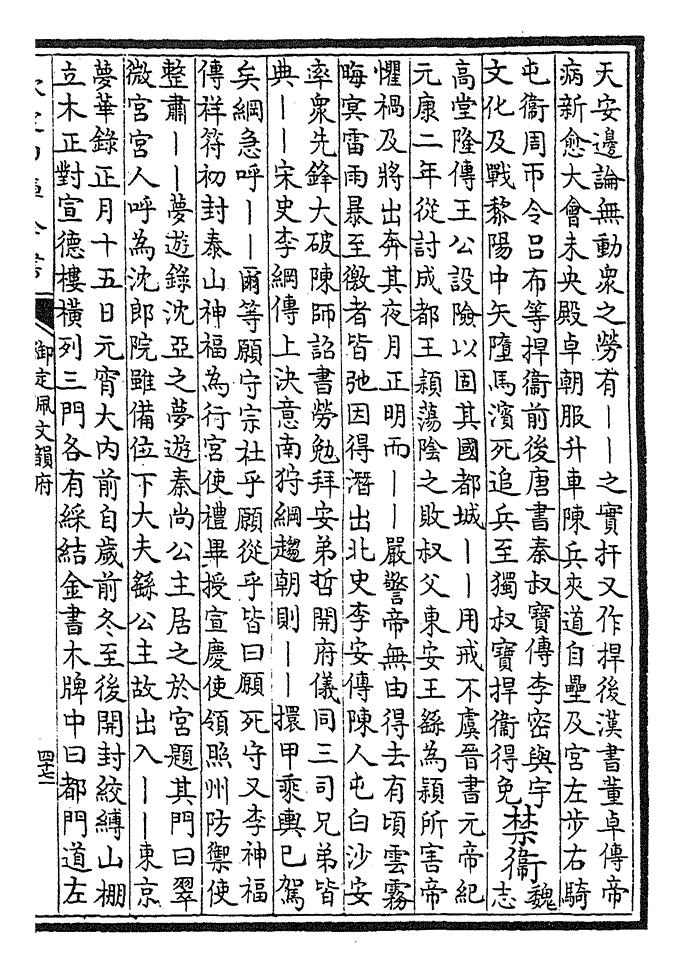 天安邊論無動衆之勞有——之實扞又作捍後漢書董卓傳帝
病新愈大會未央殿卓朝服升車陳兵夾道自壘及宮左步右騎
屯衞周帀令呂布等捍衞前後唐書秦叔寶傳李密與宇
文化及戰黎陽中矢墮馬濱死追兵至獨叔寶捍衞得免
禁衞
魏
志
高堂隆傳王公設險以固其國都城——用戒不虞晉書元帝紀
元康二年從討成都王穎蕩陰之敗叔父東安王繇為穎所害帝
懼禍及將出奔其夜月正明而——嚴警帝無由得去有頃雲霧
晦冥雷雨暴至徼者皆弛因得潛出北史李安傳陳人屯白沙安
率衆先鋒大破陳師詔書勞勉拜安弟哲開府儀同三司兄弟皆
典——宋史李綱傳上決意南狩綱趨朝則——擐甲乘輿已駕
矣綱急呼——爾等願守宗社乎願從乎皆曰願死守又李神福
傳祥符初封泰山神福為行宮使禮畢授宣慶使領照州防禦使
整肅——夢遊錄沈亞之夢遊秦尚公主居之於宮題其門曰翠
微宮宮人呼為沈郎院雖備位下大夫繇公主故出入——東京
夢華錄正月十五日元宵大內前自歲前冬至後開封絞縛山棚
立木正對宣德樓橫列三門各有綵結金書木牌中曰都門道左
御定佩文韻府
四十七